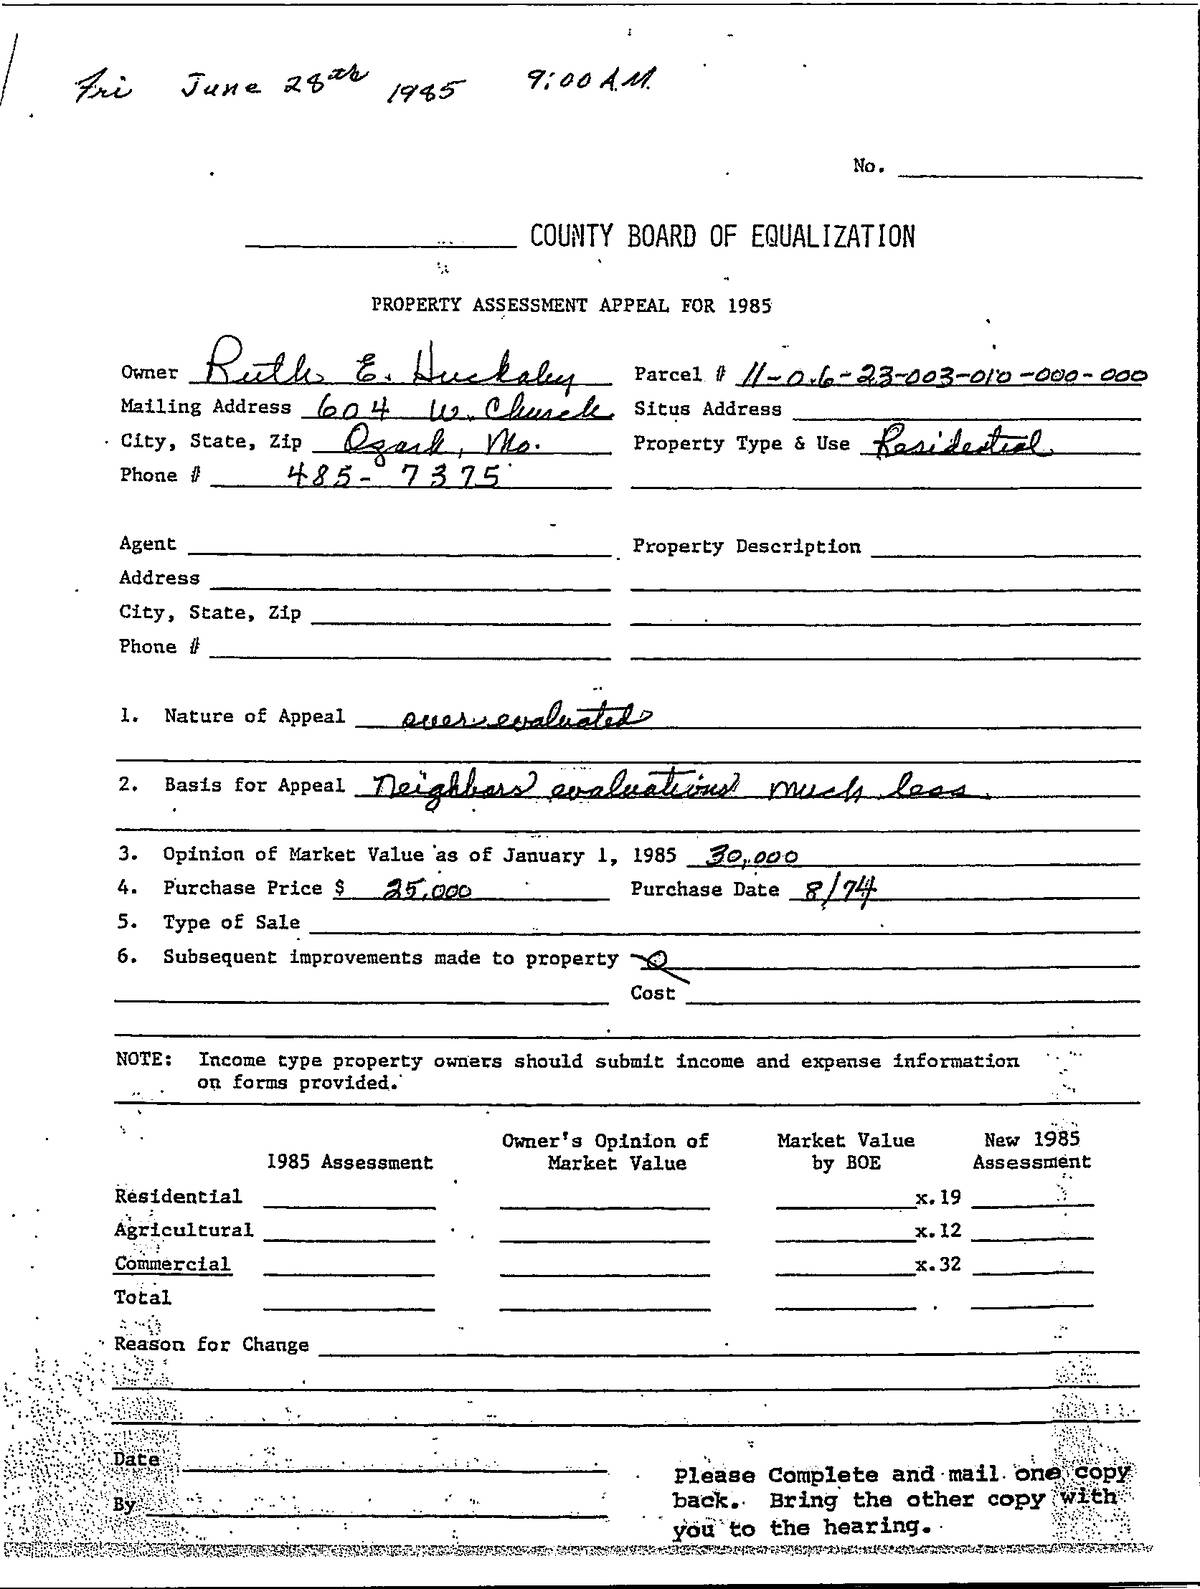 Fri June 28th 1985 9:00 A.M.
No.
COUNTY BOARD OF EQUALIZATION
PROPERTY ASSESSMENT APPEAL FOR 1985
Owner Ruth E. Huckaby Parcel # 11-0.6-23-003-010-000-000
Mailing Address 604 W. Church Situs Address
City, State, Zip Ozark, Mo. Property Type & Use Residential
Phone # 485-7375
Agent Property Description
Address
City, State, Zip
Phone #
1. Nature of Appeal over evaluated
2. Basis for Appeal Neighbors evaluations much less.
3. Opinion of Market Value as of January 1, 1985 30,000
4. Purchase Price $ 25,000 Purchase Date 8/74
5. Type of Sale
6. Subsequent improvements made to property 0
Cost
NOTE: Income type property owners should submit income and expense information
on forms provided.
Owner's Opinion of Market Value New 1985
1985 Assessment Market Value by BOE Assessment
Residential x.19
Agricultural x.12
Commercial x.32
Total
Reason for Change
Date
Please Complete and mail one copy
By back. Bring the other copy with
you to the hearing.